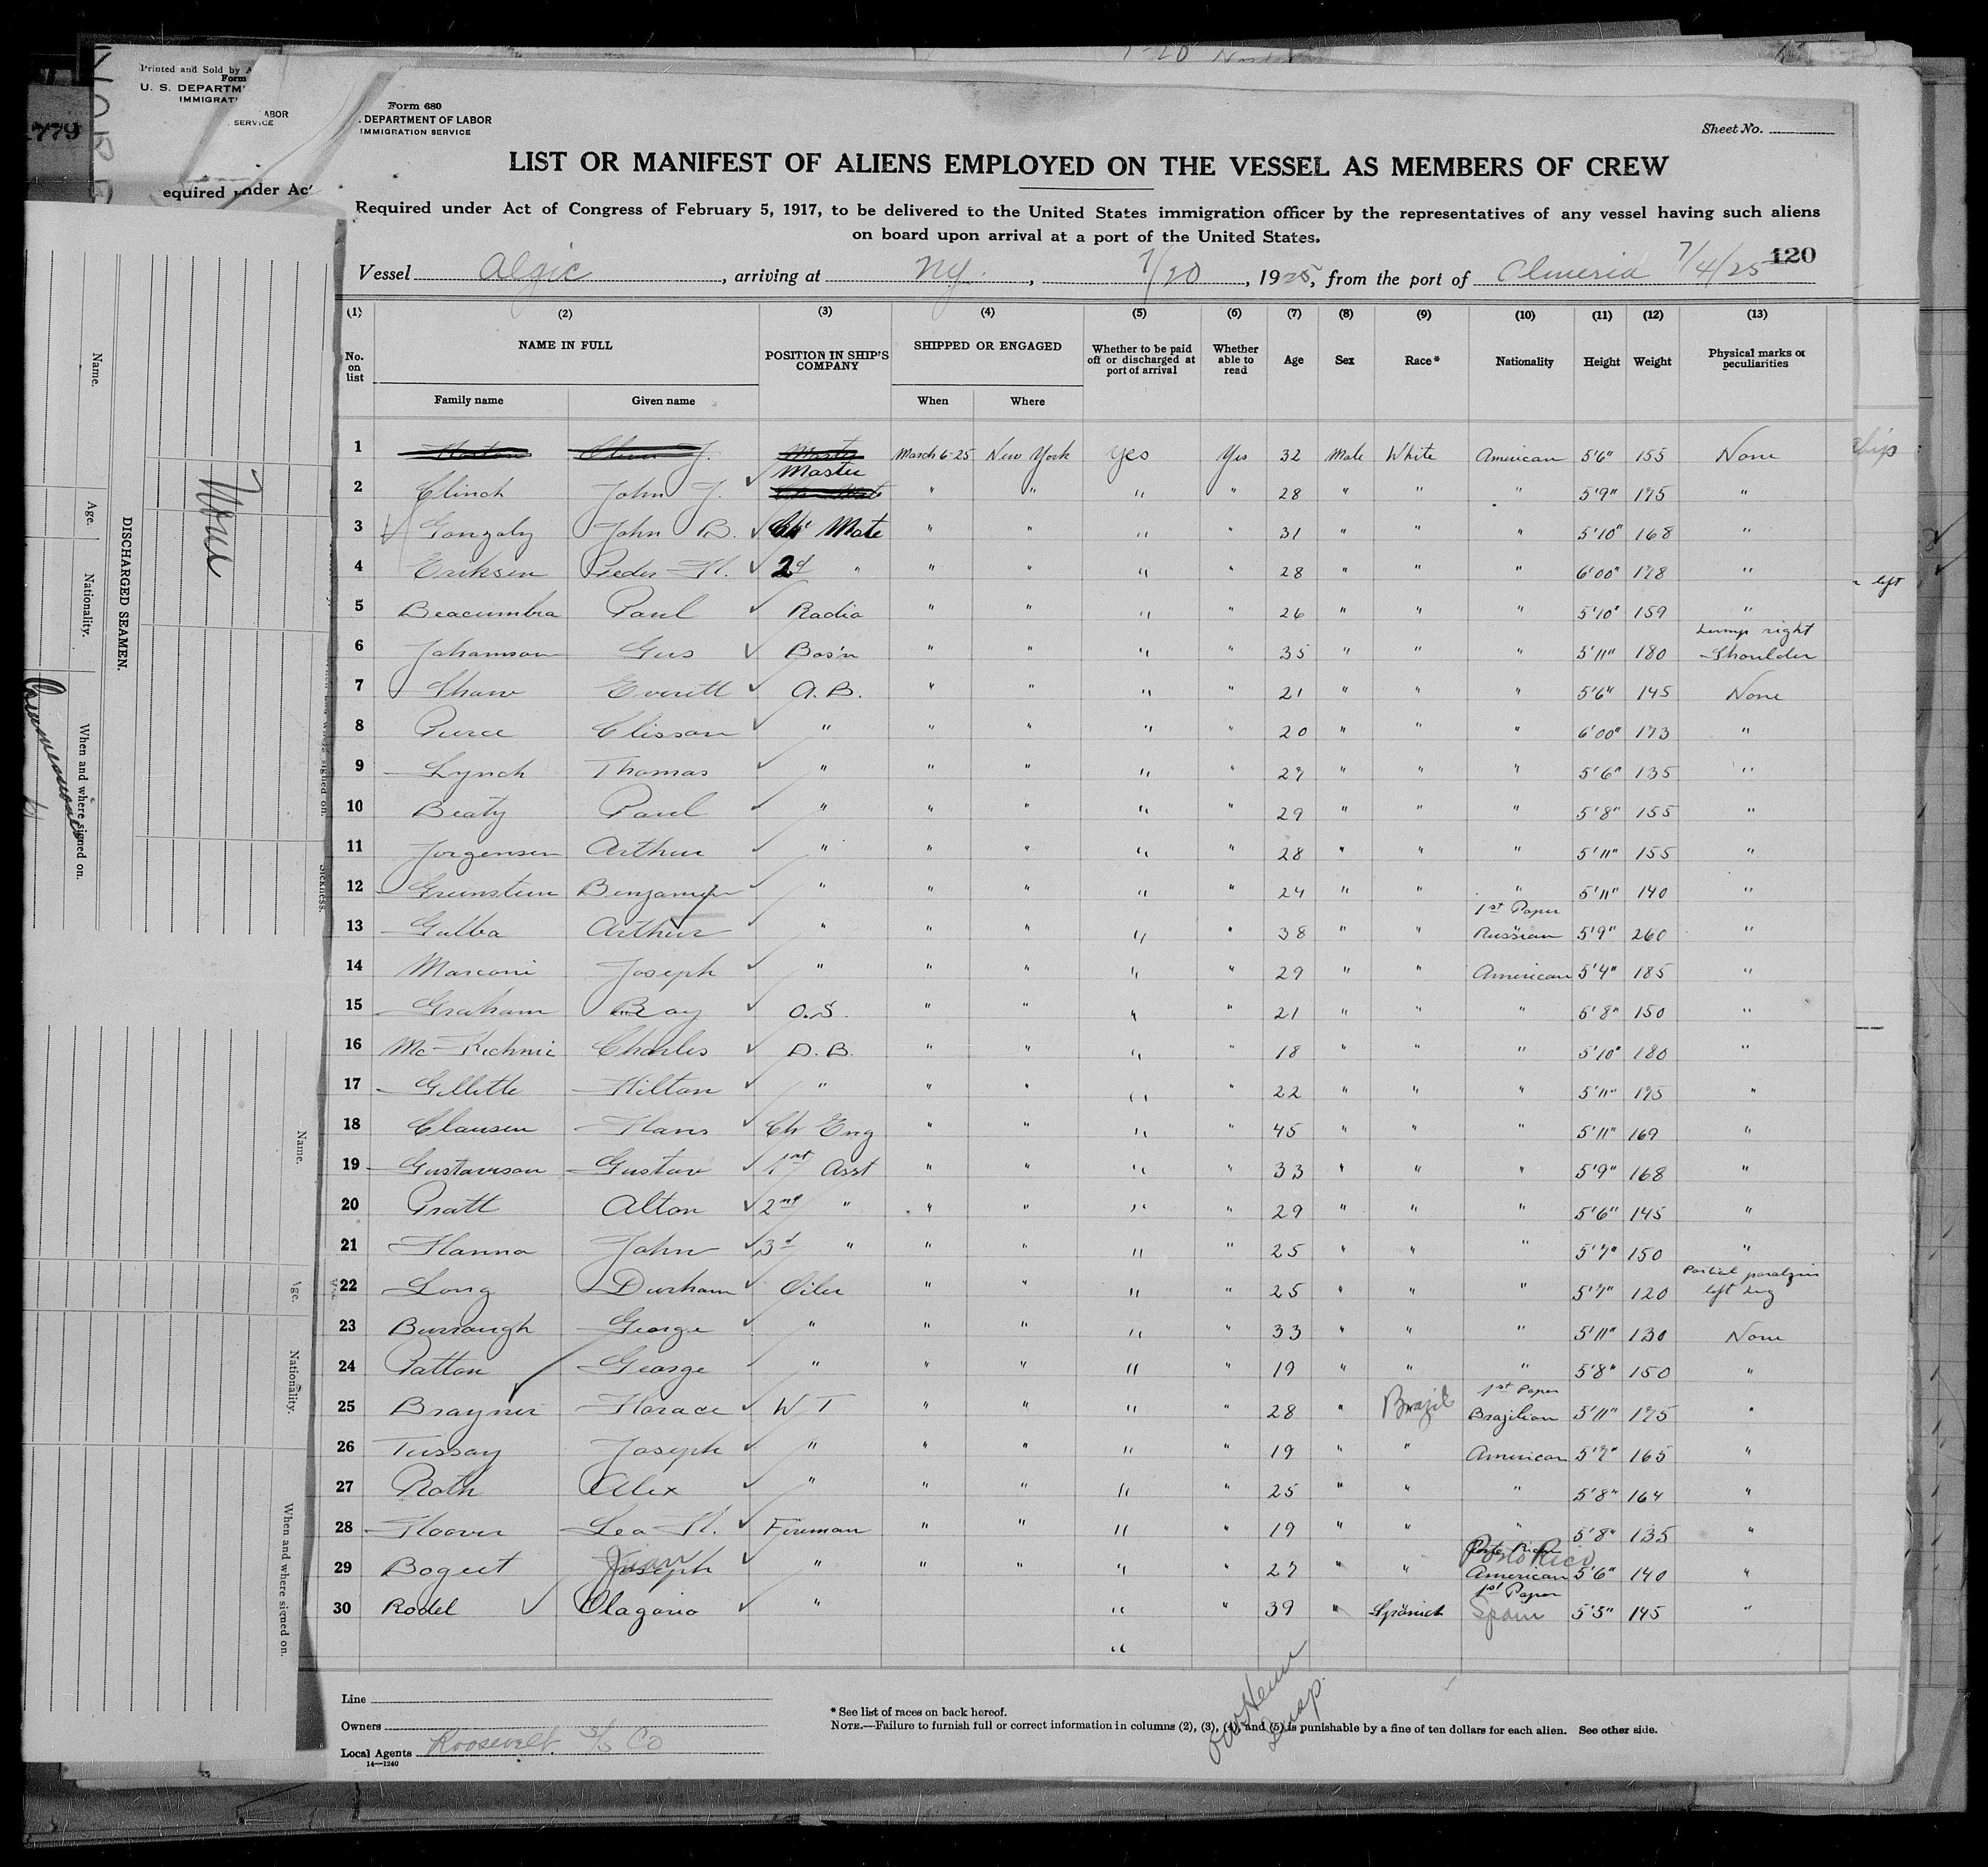 Printed and Sold by
Form
U. S. DEPARTM
IMMIGRAT
ABOR
SERVICE
779
equired under Act
Form 680
. DEPARTMENT OF LABOR
IMMIGRATION SERVICE
Sheet No.
LIST OR MANIFEST OF ALIENS EMPLOYED ON THE VESSEL AS MEMBERS OF CREW
Required under Act of Congress of February 5, 1917, to be delivered to the United States immigration officer by the representatives of any vessel having such aliens
on board upon arrival at a port of the United States.
120
Vessel Algic, arriving at NY., 7/20, 1925, from the port of Almeria 7/4/25
(1) (2) (3) (4) (5) (6) (7) (8) (9) (10) (11) (12) (13)
No. on list NAME IN FULL POSITION IN SHIP'S COMPANY SHIPPED OR ENGAGED Whether to be paid off or discharged at port of arrival Whether able to read Age Sex Race* Nationality Height Weight Physical marks or peculiarities
Family name Given name When Where
1 J. March 6-25 New York Yes Yes 32 Male White American 5'6" 155 None
Master
2 Clinch John J. " " " " 28 " " " 5'9" 175 "
3 Gonzaly John B. Ch Mate " " " " 31 " " " 5'10" 168 "
4 Eriksen Peder H. 2d " " " " " 28 " " " 6'00" 178 "
5 Beacumbra Paul Radio " " " " 26 5'10" 159 "
Lump right
6 Johannson Gus Bos'n " " " " 35 " " " 5'11" 180 Shoulder
7 Shaw Everitt A.B. " " " " 21 " " " 5'6" 145 None
8 Pierce Clisson " " " " " 20 " " " 6'00" 173 "
9 Lynch Thomas " " " " " 27 " " " 5'6" 135 "
10 Beaty Paul " " " " " 29 " " " 5'8" 155 "
11 Jorgensen Arthur " " " " " 28 " " " 5'11" 155 "
12 Greenstein Benjamin " " " " " 24 " " " 5'11" 140 "
1st Paper
13 Gulba Arthur " " " " " 38 " " Russian 5'9" 260 "
14 Marconi Joseph " " " " " 29 " " American 5'4" 185 "
15 Graham Ray O.S. " " " " 21 " " " 5'8" 150 "
16 Charles D.B. " " " " 18 " " " 5'10" 180 "
17 Gillette Hilton " " " " " 22 " " " 5'11" 175 "
18 Clausen Hans Ch Eng " " " " 45 " " " 5'11" 169 "
19 Gustavson Gustav 1st Asst " " " " 33 " " " 5'9" 168 "
20 Pratt Alton 2nd " " " " " 29 " " " 5'6" 145 "
21 Hanna John 3d " " " " " 25 " " " 5'7" 150 "
Partial paralysis
22 Long Durham Oiler " " " " 25 " " " 5'7" 120 left leg
23 Burraugh George " " " " " 33 " " " 5'11" 130 None
24 Patton George " " " " " 19 " " " 5'8" 150 "
1st Paper
25 Brayner Horace W T " " " " 28 " Brazil Brazilian 5'11" 175 "
26 Tussay Joseph " " " " " 19 " " American 5'7" 165 "
27 Roth Alex " " " " " 25 " " " 5'8" 164 "
28 Hoover Leo H. Fireman " " " " 19 " " " 5'8" 135 "
Porto Rico
29 Boguet Juan Joseph " " " " " 27 " " American 5'6" 140 "
1st Paper
30 Rodel Olagario " " " 39 " Spanish Spain 5'5" 145 "
"
Line
Owners
Local Agents Roosevelt S/S Co
14—1240
* See list of races on back hereof.
NOTE.—Failure to furnish full or correct information in columns (2), (3), (4), and (5) is punishable by a fine of ten dollars for each alien. See other side.
Insp.
Name.
Age.
Nationality.
When and where signed on.
DISCHARGED SEAMEN.
None
Sickness.
Name.
Age.
Nationality.
When and where signed on.
left